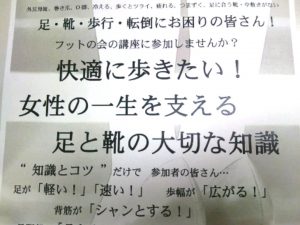 外反母趾、巻き爪、O脚、冷える、歩くとツライ、疲れる、つまずく、足に合う靴・中敷きがない
足・靴・歩行・転倒にお困りの皆さん！
フットの会の講座に参加しませんか？
快適に歩きたい！
女性の一生を支える
足と靴の大切な知識
“知識とコツ”だけで 参加者の皆さん…
足が「軽い！」「速い！」 歩幅が「広がる！」
背筋が「シャンとする！」